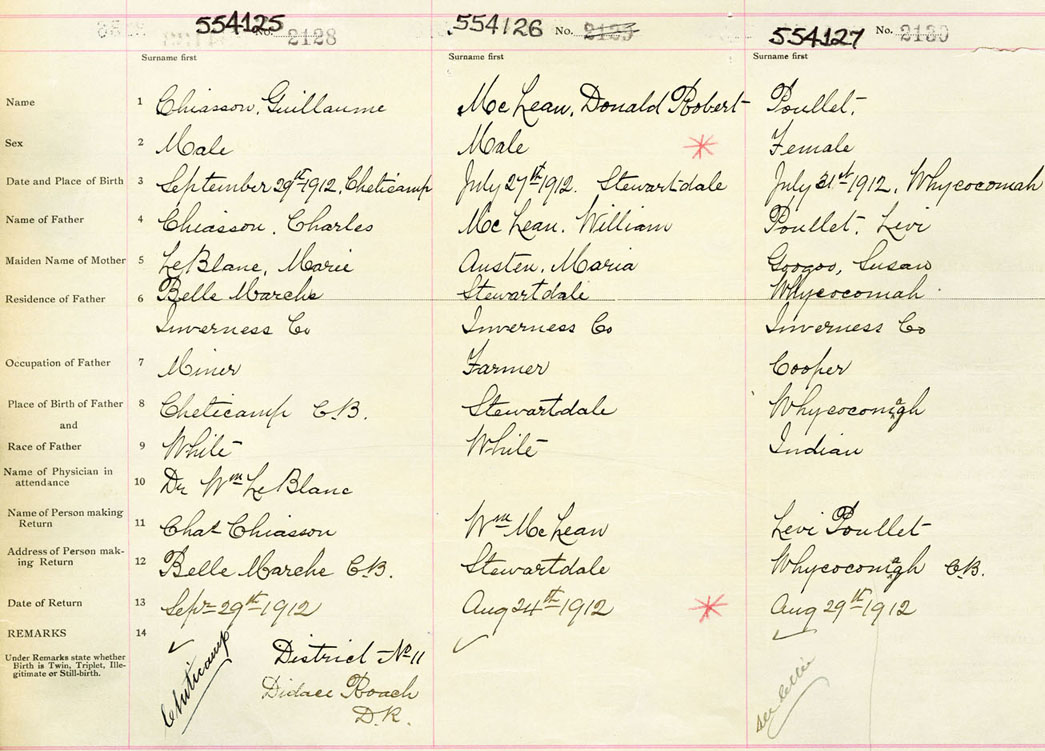 554125 No. 2128 554126 No. 2129 554127 No. 2130
Surname first Surname first Surname first
Name 1 Chiasson, Guillaume McLean, Donald Robert Poullet,
Sex 2 Male Male Female
Date and Place of Birth 3 September 29th 1912, Cheticamp July 27th 1912. Stewartdale July 31st 1912, Whycocomah
Name of Father 4 Chiasson, Charles McLean, William Poullet, Levi
Maiden Name of Mother 5 LeBlanc, Marie Austen, Maria Googoo, Susan
Residence of Father 6 Belle Marche Stewartdale Whycocomah
Inverness Co Inverness Co Inverness Co
Occupation of Father 7 Miner Farmer Cooper
Place of Birth of Father 8 Cheticamp C.B. Stewartdale Whycocomagh
and
Race of Father 9 White White Indian
Name of Physician in
attendance 10 Dr Wm LeBlanc
Name of Person making
Return 11 Chas Chiasson Wm McLean Levi Poullet
Address of Person mak-
ing Return 12 Belle Marche C.B. Stewartdale Whycocomagh C.B.
Date of Return 13 Sept 29th 1912 Aug 24th 1912 Aug 29th 1912
REMARKS 14
Under Remarks state whether
Birth is Twin, Triplet, Ille-
gitimate or Still-birth.
Cheticamp
District No 11
Didace Roach
D.R.